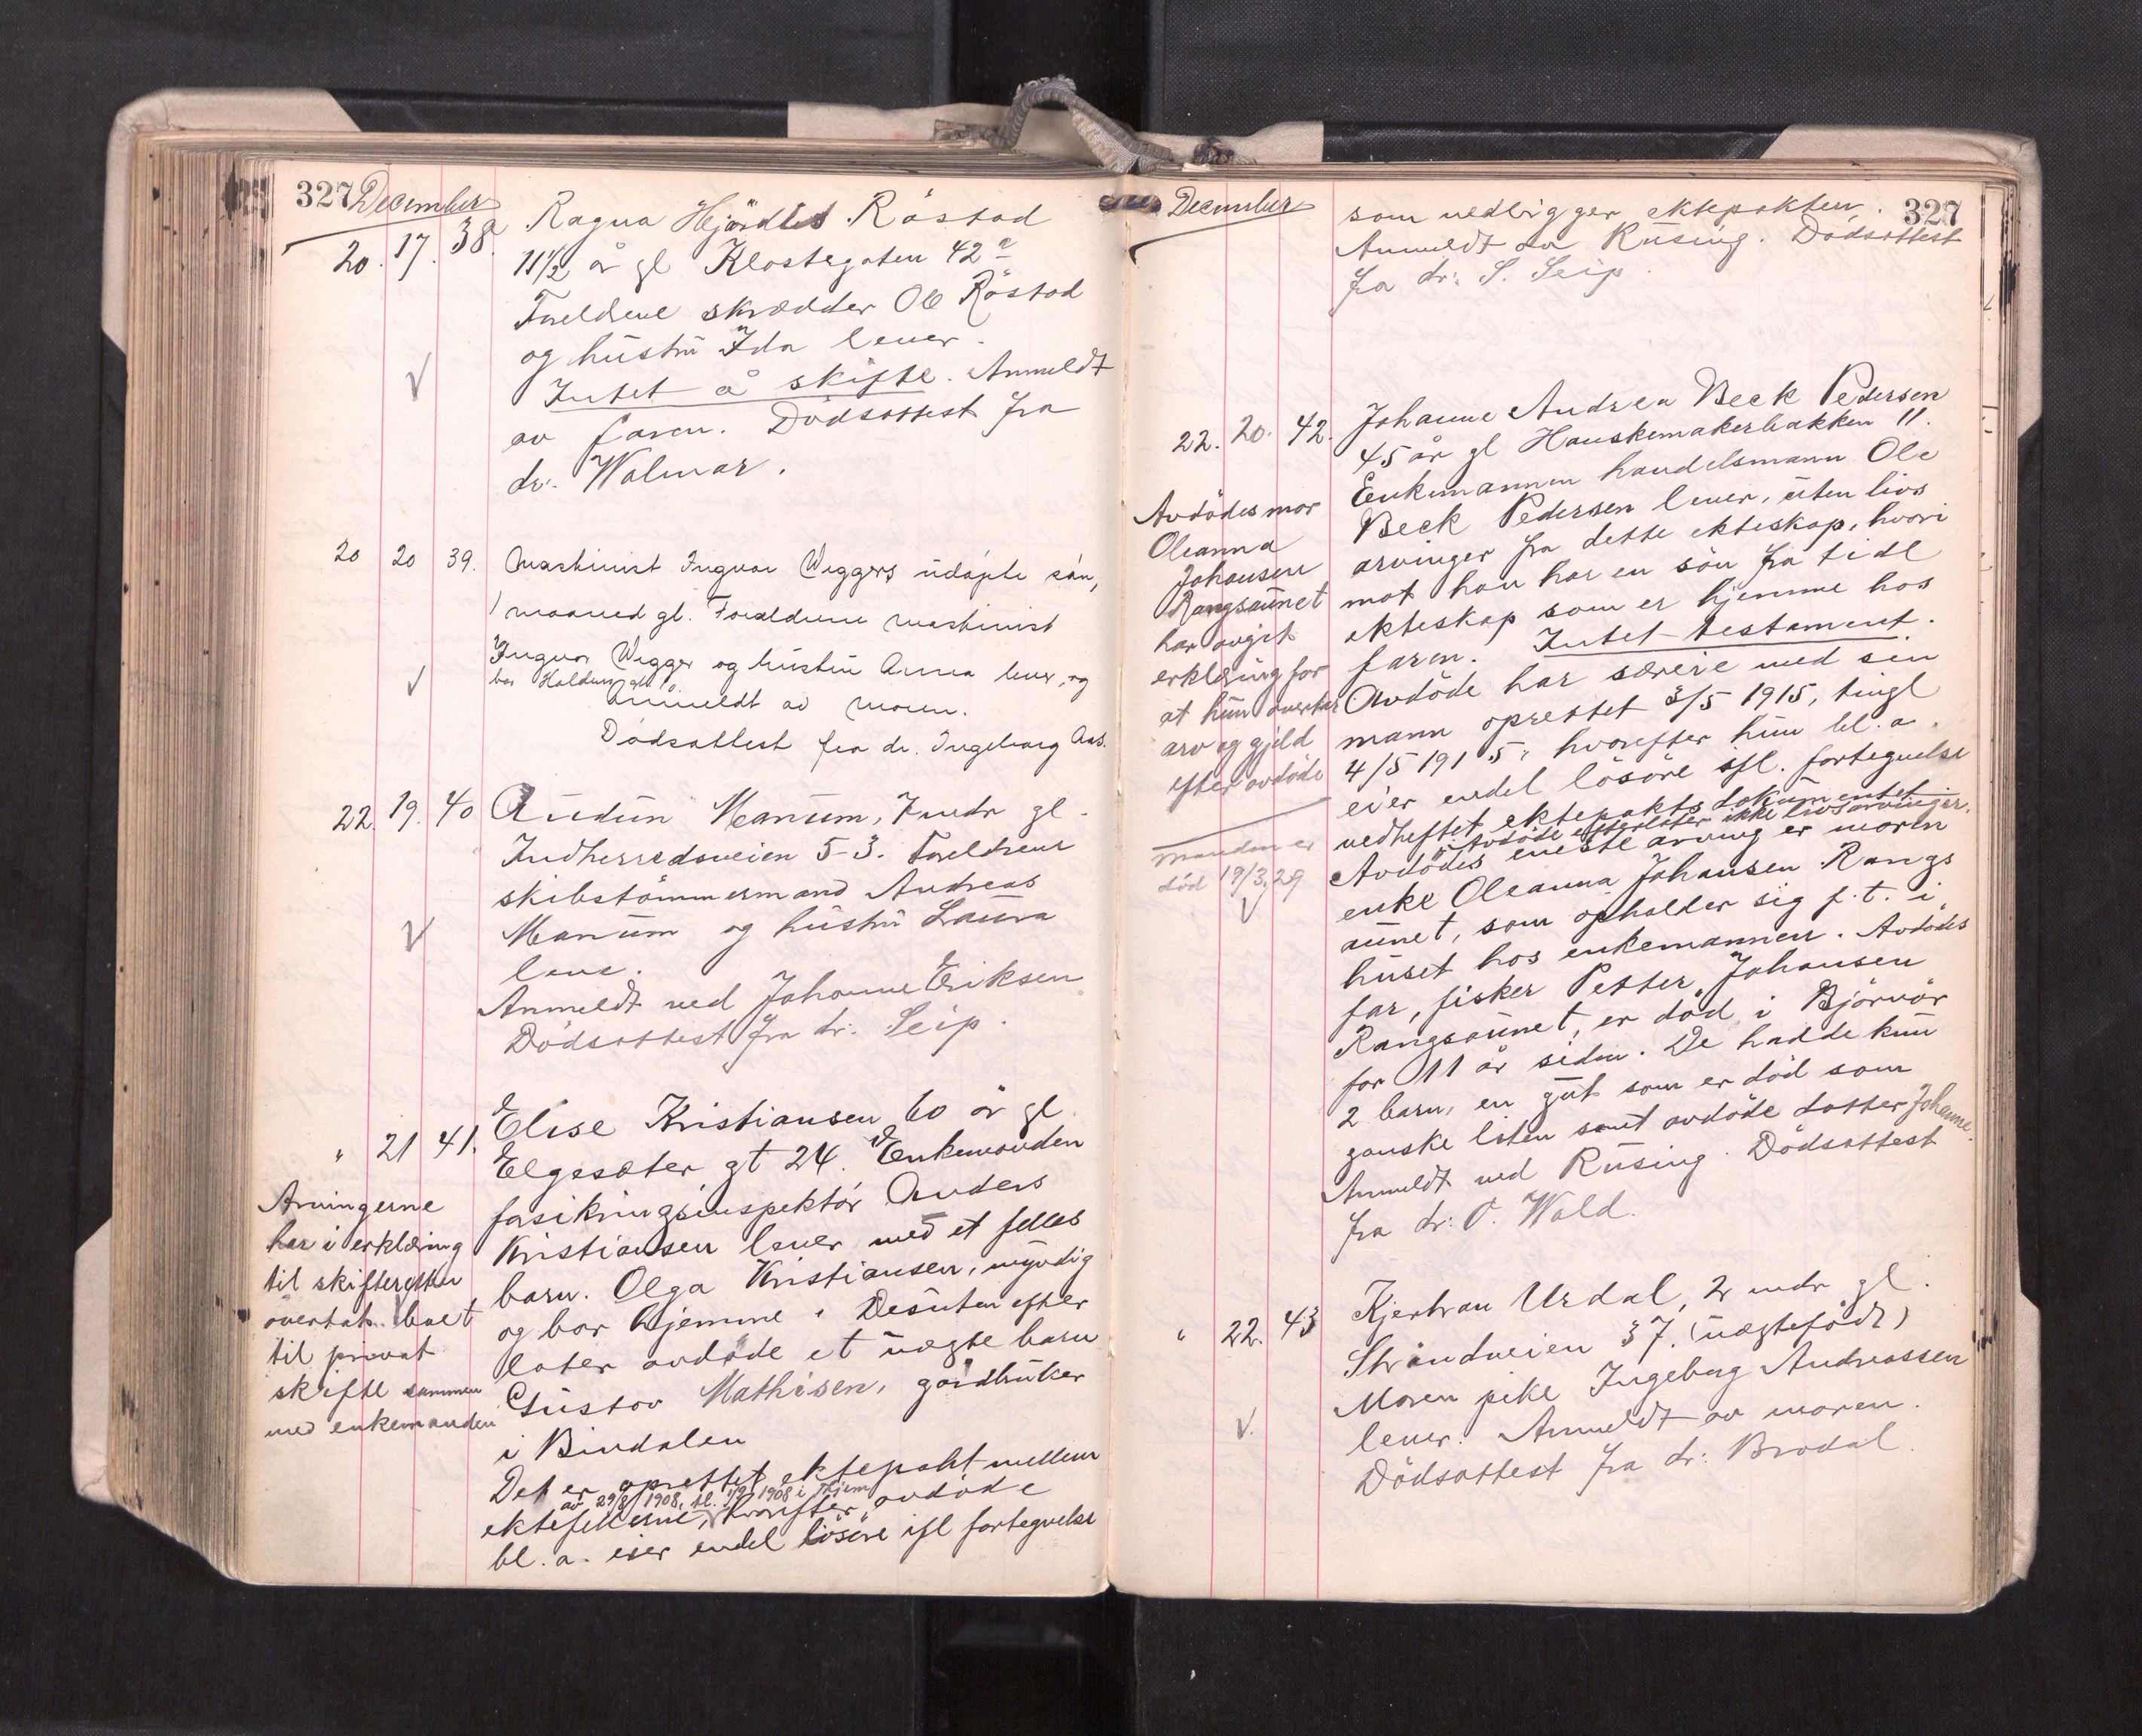 327 December
20. 17. 38. Ragna Hjördis Röstad
11½ år gl Klostergaten 42ª
Foreldrene skrædder Ole Röstad
og hustru Ida lever.
Intet å skifte. Anmeldt
av faren. Dödsattest fra
dr. Walmar.
20 20 39. Maskinist Ingvar Wiggers udöpte sön,
1 maaned gl. Forældrene maskinist
Ingvar Wigger og hustru Anna lever, og
bor Halduns gt.
Anmeldt av moren.
Dödsattest fra dr. Ingeborg Aas.
22. 19. 40 Audun Manum, 7 mdr gl.
Indherredsveien 53. Foreldrene
skibstömmermand Andreas
Manum og hustru Laura
leve.
Anmeldt ved Johanne Eriksen
Dödsattest fra dr: Seip.
" 21 41. Elise Kristiansen 60 år gl
Elgesæter gt 24. Enkemanden
forsikringsinspektör Anders
Kristiansen lever med et felles
barn. Olga Kristiansen, myndig
og bor hjemme. Desuten efter
later avdöde et uægte barn
Gustav Mathisen, gårdbruker
i Bindalen
Det er oprettet ektepakt mellem
av 29/8 1908, tl. 1/9 1908 i Thjem
ektefellerne, hvorefter avdöde
bl. a. eier endel lösöre ifl fortegnelse
Arvingerne
har i erklæring
til skifteretten
overtat boet
til privat
skifte sammen
med enkemanden
December 327
som vedligger ektepakten.
Anmeldt av Rusing. Dödsattest
fra dr: S. Seip.
22. 20. 42. Johanne Andrea Beck Pedersen
45 år gl Hanskemakerbakken 11.
Enkemannen handelsmann Ole
Beck Pedersen lever, uten livs
arvinger fra dette ekteskap, hvori
mot han har en sön fra tidl
ekteskap som er hjemme hos
faren. Intet testament.
Avdöde har særeie med sin
mann oprettet 3/5 1915, tingl
4/5 1915, hvorefter hun bl. a.
eier endel lösöre ifl. fortegnelse
vedheftet ektepakts dokumentet.
Avdöde efterlater ikke livsarvinger.
Avdödes eneste arving er moren
enke Oleanna Johansen Rangs
aunet, som opholder sig f.t. i
huset hos enkemannen. Avdödes
far, fisker Petter Johansen
Rangsaunet, er död i Björnör
for 11 år siden. De hadde kun
2 barn, en gut som er död som
ganske liten samt avdöde datter Johanne.
Anmeldt ved Rusing. Dödsattest
fra dr: P. Wold.
Avdödes mor
Oleanna
Johansen
Rangsaunet
har avgit
erklæring for
at hun overtar
arv og gjeld
efter avdöde
Manden er
död 19/3.29
" 22. 43 Kjertran Urdal, 2 mdr gl.
Strandveien 37. (uægtefödt)
Moren pike Ingeborg Andreassen
lever. Anmeldt av moren.
Dödsattest fra dr: Brodal.